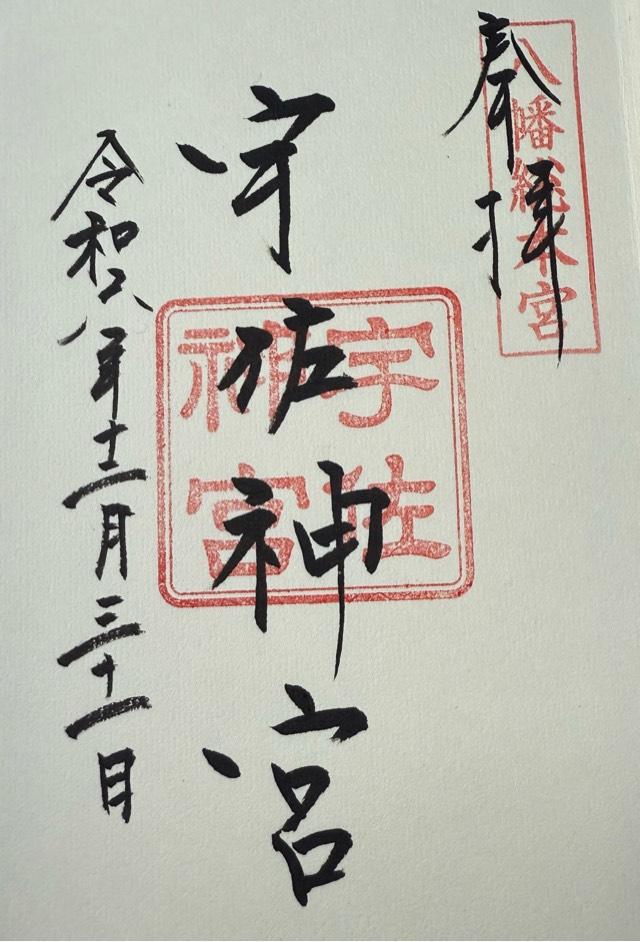 奉拝
八幡総本宮
宇佐神宮
宇佐
神宮
令和六年十二月三十一日